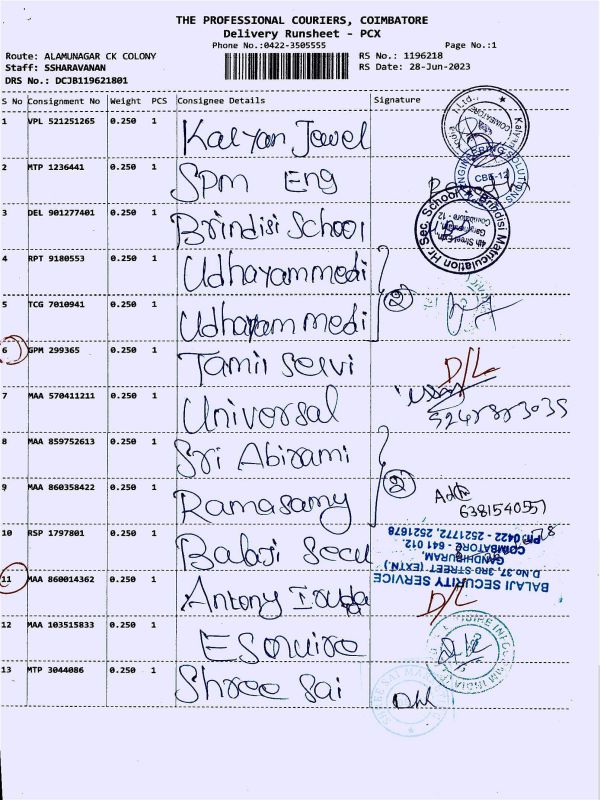 THE PROFESSIONAL COURIERS, COIMBATORE
Delivery Runsheet - PCX
Phone No.:0422-3505555 Page No.:1
Route: ALAMUNAGAR CK COLONY RS No.: 1196218
Staff: SSHARAVANAN RS Date: 28-Jun-2023
DRS No.: DCJB119621801
S No Consignment No Weight PCS Consignee Details Signature
1 VPL 521251265 0.250 1 Kalyan Jewel
2 MTP 1236441 0.250 1 SPM Eng
3 DEL 901277401 0.250 1 Brindisi School
4 RPT 9180553 0.250 1 Udhayam medi
5 TCG 7010941 0.250 1 Udhayam medi
2
6 GPM 299365 0.250 1 Tamil Selvi D/L
7 MAA 570411211 0.250 1 Universal
8 MAA 859752613 0.250 1 Sri Abirami
9 MAA 860358422 0.250 1 Ramasamy
2
6381540557
10 RSP 1797801 0.250 1 Balaji Secu
BALAJI SECURITY SERVICE
D.No.37, 3RD STREET (EXTN.)
GANDHIPURAM,
COIMBATORE - 641 012.
PH: 0422 - 2521772, 2521678
11 MAA 860014362 0.250 1 Antony D/L
12 MAA 103515833 0.250 1 Esquire
13 MTP 3044086 0.250 1 Shree Sai
ENGINEERING SOLUTIONS
CBE-12
Brindisi Matriculation Hr. Sec. School
4th Street Extn,
Coimbatore - 12